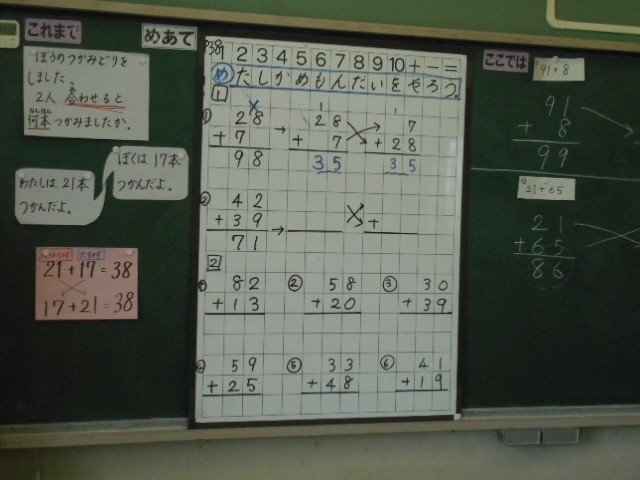 これまで
めあて
ここでは
ぼうのつかみどりを
しました。
2人合わせると
何本つかみましたか。
なんぼん
ぼくは17本
つかんだよ。
わたしは21本
つかんだよ。
21+17=38
17+21=38
P.38
1 2 3 4 5 6 7 8 9 10 + − =
め たしかめもんだいをやろう。
1
① 28
+ 7
98
→
1
28
+ 7
35
1
7
+ 28
35
② 42
+ 39
71
→
+
2
① 82
+ 13
② 58
+ 20
③ 30
+ 39
④ 59
+ 25
⑤ 33
+ 48
⑥ 41
+ 19
91+8
91
+ 8
99
21+65
21
+ 65
86